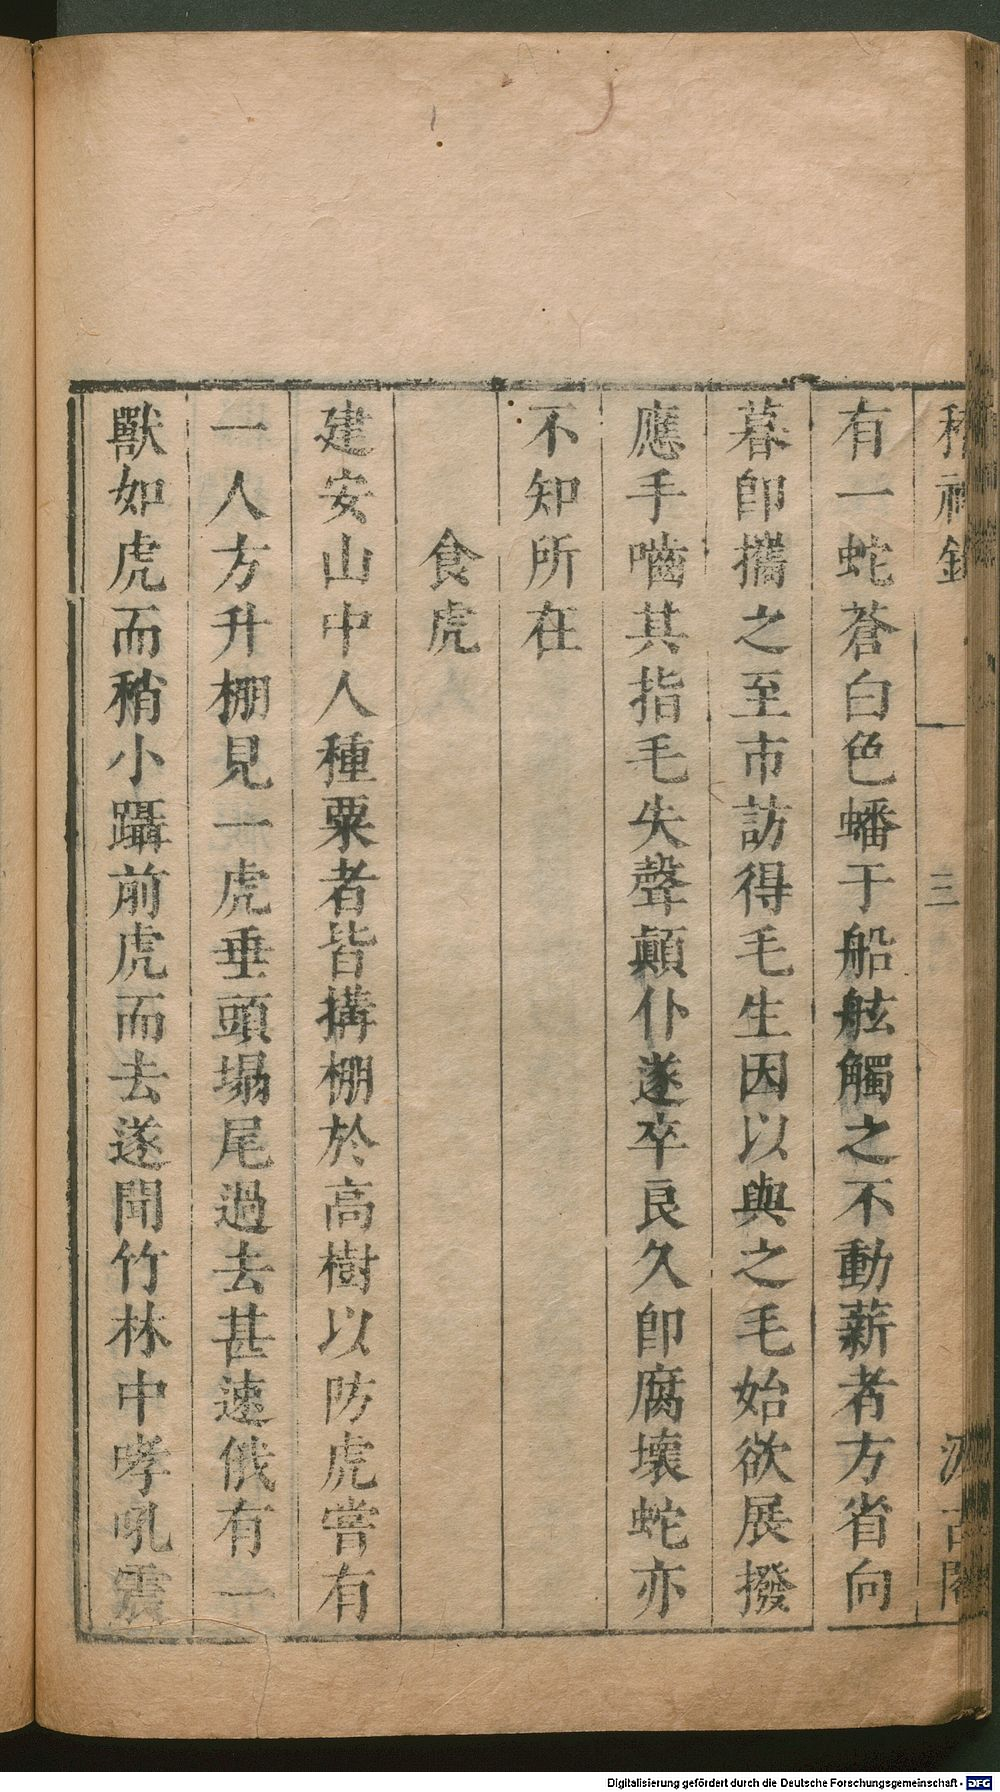 稽神錄 三 汲古閣
有一蛇蒼白色蟠于船舷觸之不動薪者方省向
暮卽攜之至市訪得毛生因以與之毛始欲展撥
應手嚙其指毛失聲顛仆遂卒良久卽腐壞蛇亦
不知所在
食虎
建安山中人種粟者皆搆棚於高樹以防虎嘗有
一人方升棚見一虎垂頭塌尾過去甚速俄有一
獸如虎而稍小躡前虎而去遂聞竹林中哮吼震
Digitalisierung gefördert durch die Deutsche Forschungsgemeinschaft - DFG